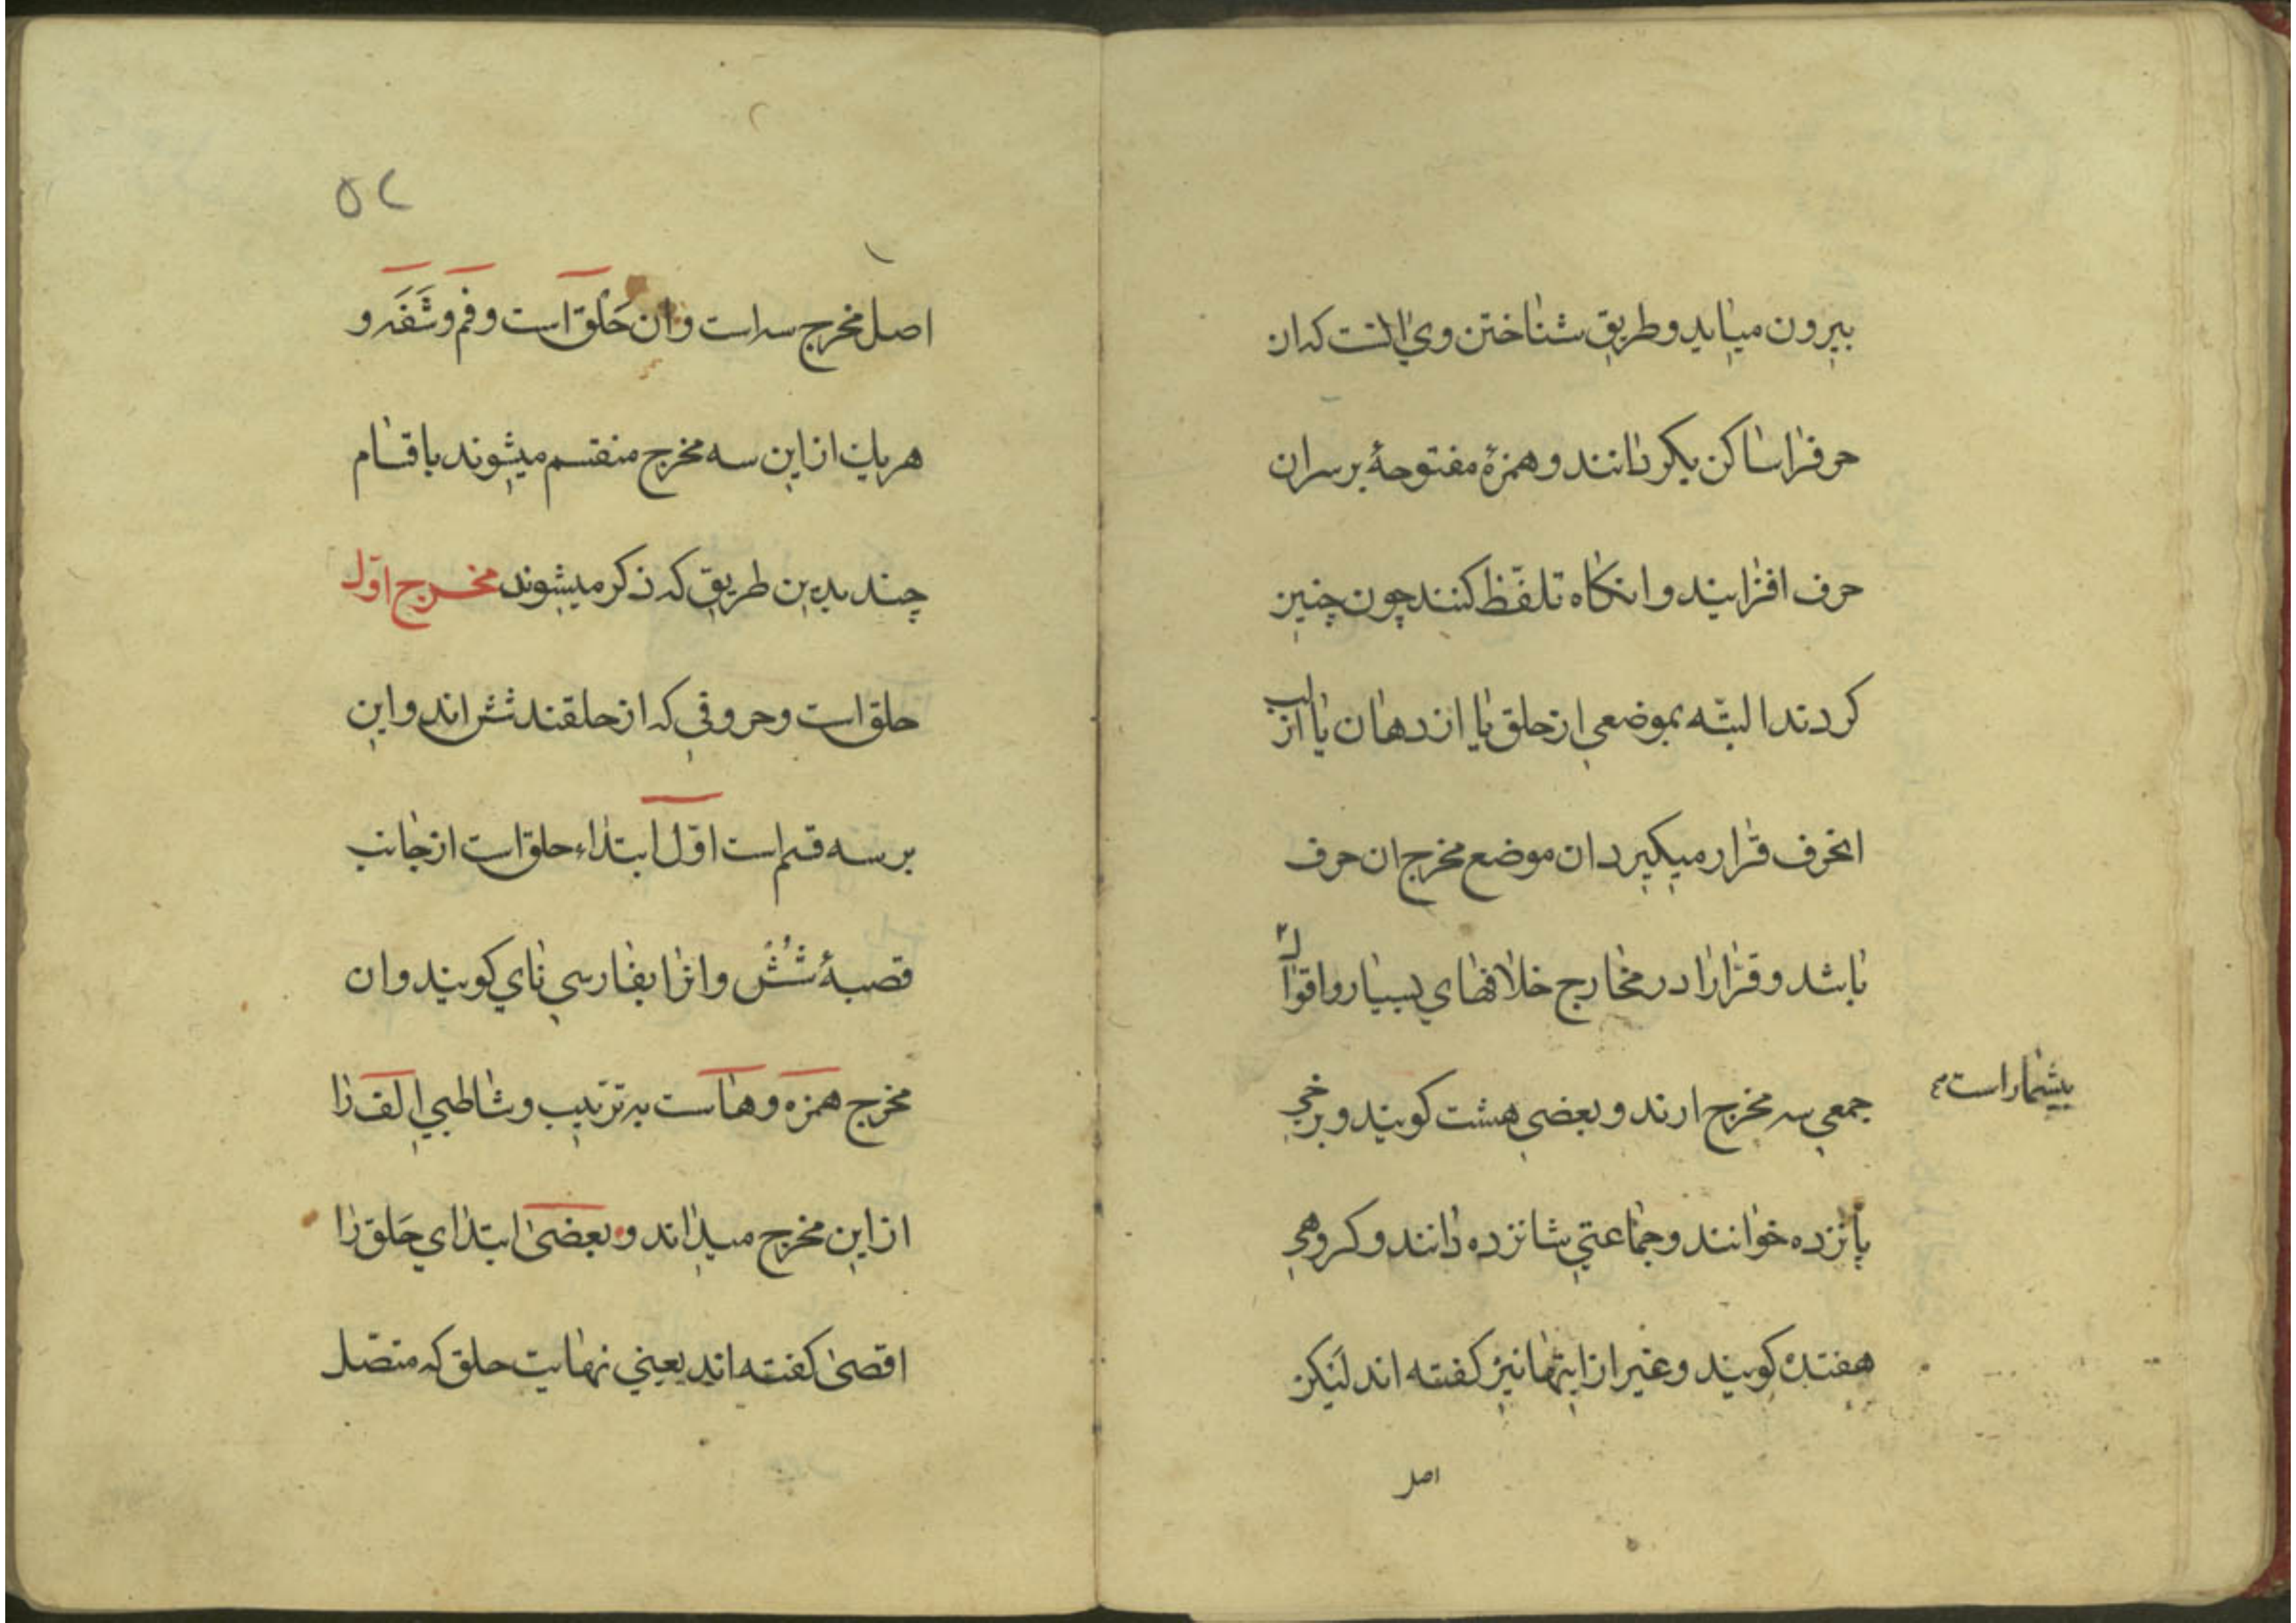 بیرون میاید و طریق شناختن وي انست که ان
حرفرا ساکن بکردانند و همزۀ مفتوحۀ بر سر ان
حرف افزایند و انکاه تلفّظ کنند چون چنین
کردند البتّه بموضعي از حلق یا از دهان یا از لب
انحرف قرار میکیرد ان موضع مخرج ان حرف
باشد و قرّارا در مخارج خلافهاي بسیار و اقوال
بیشمار است
جمعي سه مخرج ارند و بعضي هشت کویند و برخي
پانزده خوانند و جماعتي شانزده دانند و کروهي
هفتده کویند و غیر از اینها نیز کفته اند لیکن
اصل
۵۲
اصل مخرج سه است و ان حَلق است و فم و شَفَه و
هر یك از این سه مخرج منقسم میشوند باقسام
چند بدین طریق که ذکر میشوند مخرج اوّل
حلق است و حروفي که از حلقند شش اند و این
بر سه قسم است اوّل ابتداء حلق است از جانب
قصبۀ شُشْ و انرا بفارسي ناي کویند و ان
مخرج همزه و هاست به ترتیب و شاطبي الف را
از این مخرج میداند و بعضی ابتداي حَلق را
اقصی کفته اند یعني نهایت حلق که متصّل